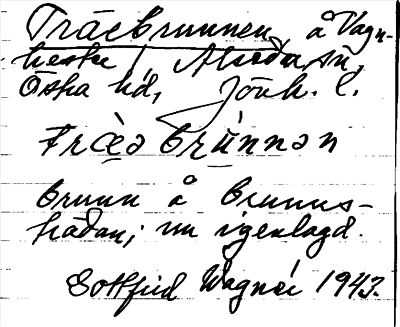 Träebrunnen, å Vagn-
hester, Almesåkra sn,
Östra hd, Jönk. l.
Træ̀ə brùnnən
brunn å brunns-
hädan; nu igenlagd.
Gottfrid Wagnér 1943.